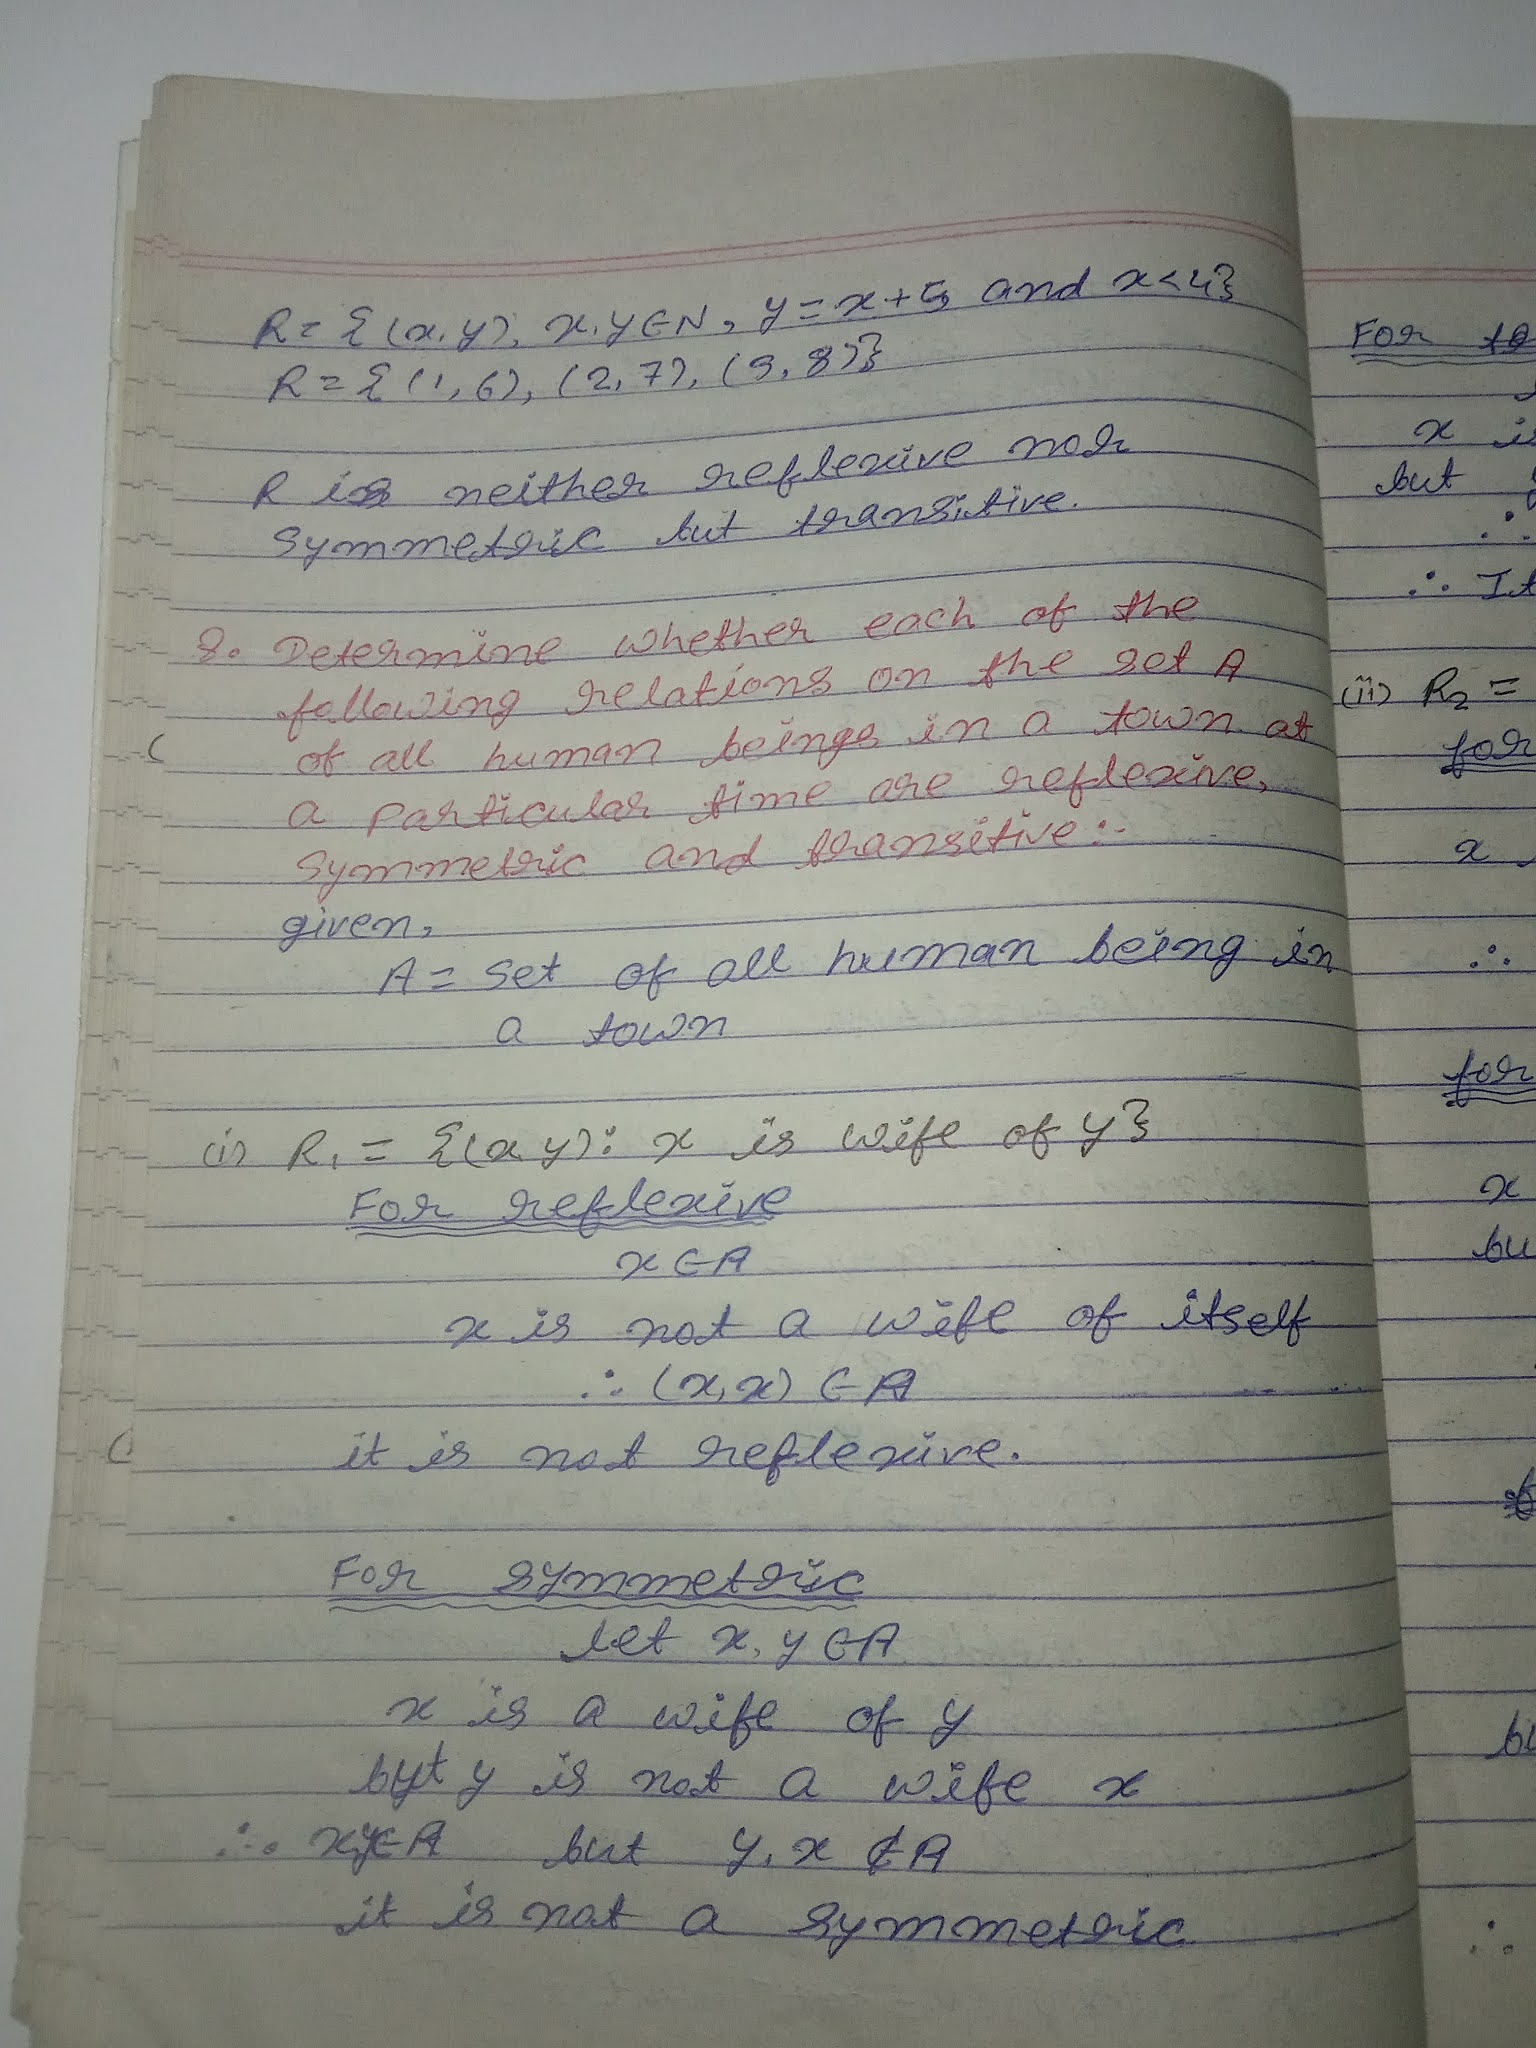 R = {(x, y), x, y ∈ N, y = x + 5 and x < 4}
R = {(1, 6), (2, 7), (3, 8)}
R is neither reflexive nor
symmetric but transitive.
8. Determine whether each of the
following relations on the set A
of all human beings in a town at
a particular time are reflexive,
symmetric and transitive :-
given,
A = set of all human being in
a town
(i) R₁ = {(x, y) : x is wife of y}
For reflexive
x ∈ A
x is not a wife of itself
∴ (x, x) ∈ A
it is not reflexive.
For symmetric
let x, y ∈ A
x is a wife of y
but y is not a wife x
∴ x, y ∈ A but y, x ∉ A
it is not a symmetric
For
x is
but
∴
∴ It
(ii) R₂ =
for
x
∴
for
x
bu
bu
∴